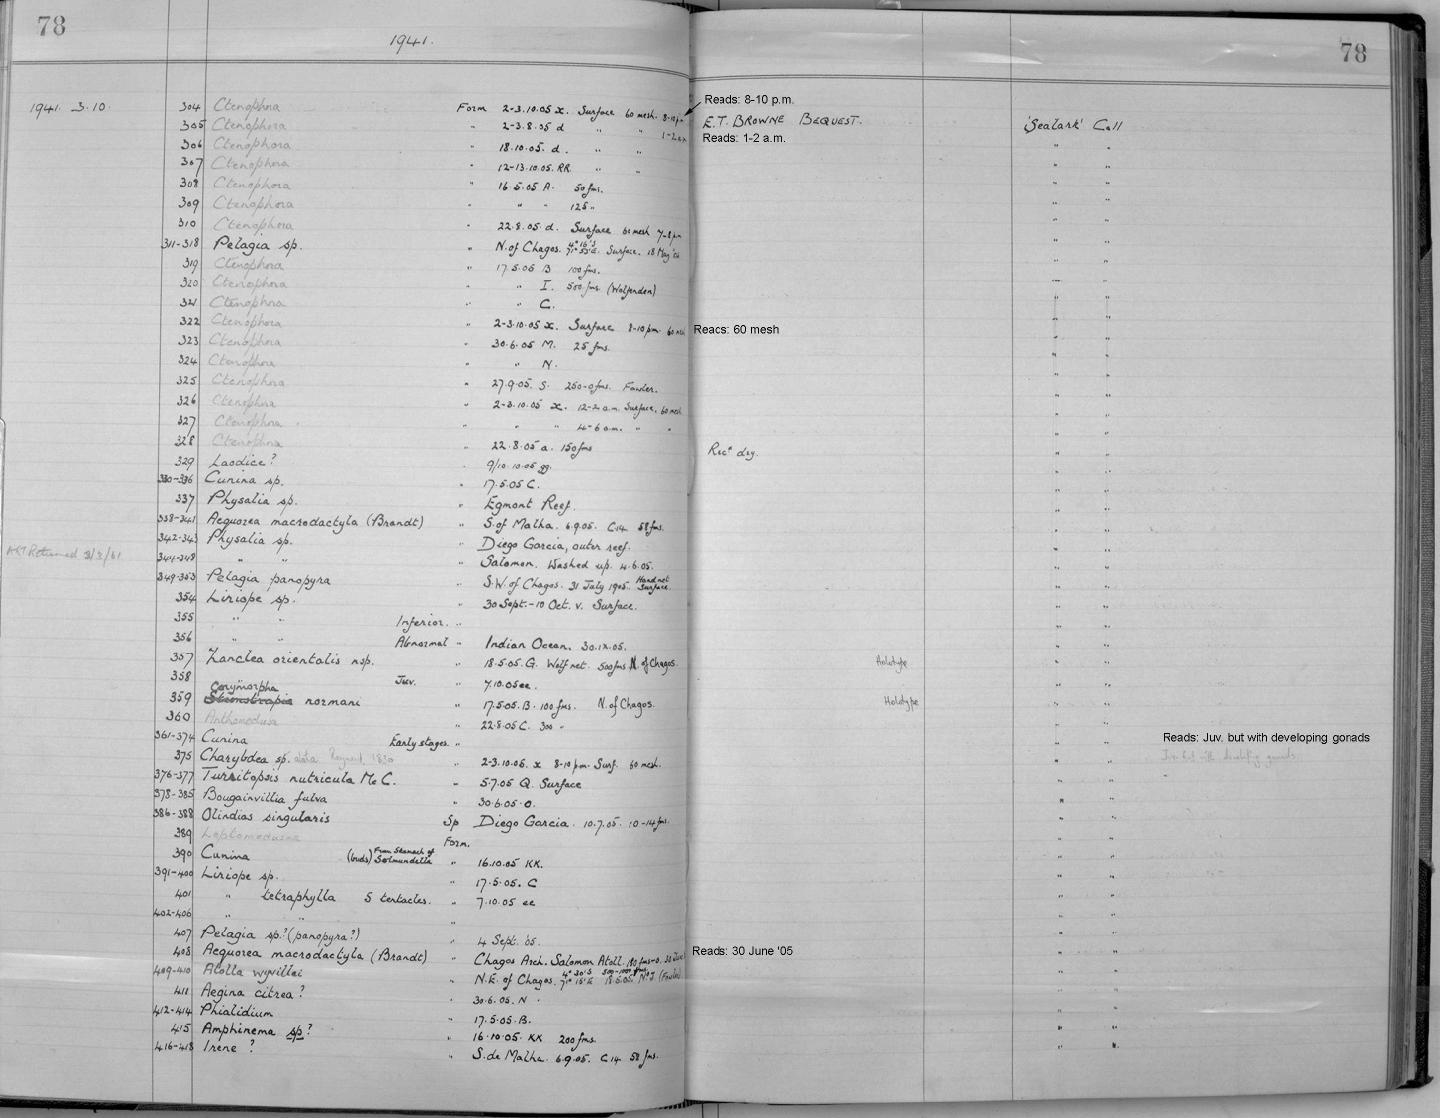 78
1941.
78
1941. 3.10. 304 Ctenophora Form 2-3.10.05 x. Surface 60 mesh. 8-10 pm
Reads: 8-10 p.m.
305 Ctenophora " 2-3.8.05 d " " 1-2 a.m E.T. BROWNE BEQUEST. 'Sealark' Coll
Reads: 1-2 a.m.
306 Ctenophora " 18.10.05 d. " " " "
307 Ctenophora " 12-13.10.05. RR. " " " "
308 Ctenophora " 16.5.05 A. 50 fms. " "
309 Ctenophora " " " 125 " " "
310 Ctenophora " 22.8.05. d. Surface 60 mesh 7-8 pm " "
311-318 Pelagia sp. " N. of Chagos. 4° 16'S 71° 53'E. Surface. 18 May '05 " "
319 Ctenophora " 17.5.05 B 100 fms. " "
320 Ctenophora " " I. 500 fms. (Wolfenden) " "
321 Ctenophora " " C. " "
322 Ctenophora " 2-3.10.05 x. Surface 8-10 pm. 60 mesh " "
Reacs: 60 mesh
323 Ctenophora " 30.6.05 M. 25 fms. " "
324 Ctenophora " " N. " "
325 Ctenophora " 27.9.05. S. 250-0 fms. Fowler. " "
326 Ctenophora " 2-3.10.05 x. 12-2 a.m. Surface. 60 mesh " "
327 Ctenophora " " " 4-6 a.m. " " " "
328 Ctenophora " 22.8.05 a. 150 fms Recd dry. " "
329 Laodice? " 9/10.10.05 gg. " "
330-336 Cunina sp. " 17.5.05 C. " "
337 Physalia sp. " Egmont Reef. " "
338-341 Aequorea macrodactyla (Brandt) " S. of Malha. 6.9.05. C.14 58 fms. " "
342-343 Physalia sp. " Diego Garcia, outer reef. " "
Returned 2/2/61 344-348 " " " Salomon. Washed up. 4.6.05. " "
349-353 Pelagia panopyra " S.W. of Chagos. 31 July 1905. Hand net Surface. " "
354 Liriope sp. " 30 Sept.-10 Oct. v. Surface. " "
355 " " Inferior. " " "
356 " " Abnormal " Indian Ocean. 30.ix.05. " "
357 Zanclea orientalis nsp. " 18.5.05. G. Wolf net. 500 fms N. of Chagos. Holotype " "
358 Juv. " 7.10.05 ee. " "
359 Corymorpha normani " 17.5.05. B. 100 fms. N. of Chagos. Holotype " "
360 Anthomedusa " 22.8.05 C. 300 " " "
361-374 Cunina Early stages. " " "
Reads: Juv. but with developing gonads
375 Charybdea sp. alata Reynaud, 1830 " 2-3.10.05. x 8-10 pm. Surf. 60 mesh. " " Juv. but with developing gonads
376-377 Turritopsis nutricula McC. " 5.7.05 Q. Surface " "
378-385 Bougainvillia fulva " 30.6.05.O. " "
386-388 Olindias singularis Sp Diego Garcia. 10.7.05. 10-14 fms. " "
389 Leptomedusae Form. " "
390 Cunina (buds) From Stomach of Solmundella " 16.10.05 KK. " "
391-400 Liriope sp. " 17.5.05. C " "
401 " tetraphylla 5 tentacles. " 7.10.05 ee " "
402-406 " " " " "
407 Pelagia sp.? (panopyra?) " 4 Sept. '05. " "
408 Aequorea macrodactyla (Brandt) " Chagos Arch. Salomon Atoll. 130 fms-0. 30 June " "
Reads: 30 June '05
409-410 Atolla wyvillei " N.E. of Chagos. 4° 30'S 71° 15'E 500-1000 fms. 18.5.05. No I (Fowler) " "
411 Aegina citrea? " 30.6.05. N. " "
412-414 Phialidium " 17.5.05. B. " "
415 Amphinema sp? " 16.10.05. KK 200 fms. " "
416-418 Irene? " S. de Malha. 6.9.05. C.14 58 fms. " "